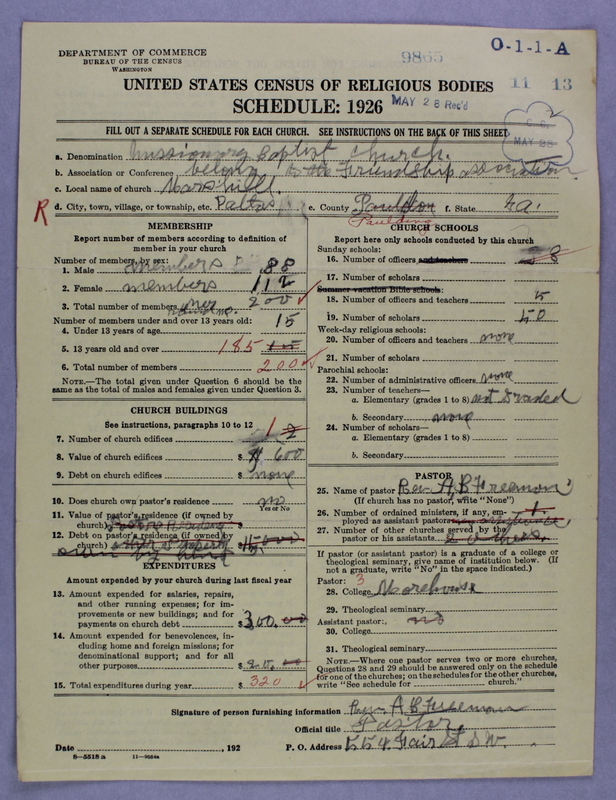 DEPARTMENT OF COMMERCE
BUREAU OF THE CENSUS
WASHINGTON
9865
O-1-1-A
11 13
UNITED STATES CENSUS OF RELIGIOUS BODIES
SCHEDULE: 1926
MAY 28 Rec'd
MAY 28
FILL OUT A SEPARATE SCHEDULE FOR EACH CHURCH. SEE INSTRUCTIONS ON THE BACK OF THIS SHEET
a. Denomination Missionary Baptist Church.
b. Association or Conference belong to the Friendship association
c. Local name of church
R d. City, town, village, or township, etc. e. County Paulding f. State Ga.
Paulding
MEMBERSHIP
Report number of members according to definition of member in your church
Number of members, by sex:
1. Male members 88
2. Female members 112
3. Total number of members 200
Number of members under and over 13 years old:
4. Under 13 years of age 15
5. 13 years old and over 185
6. Total number of members 200
NOTE.—The total given under Question 6 should be the same as the total of males and females given under Question 3.
CHURCH BUILDINGS
See instructions, paragraphs 10 to 12
7. Number of church edifices 1 2
8. Value of church edifices $ 600
9. Debt on church edifices $ none
10. Does church own pastor's residence no
Yes or No
11. Value of pastor's residence (if owned by church)
12. Debt on pastor's residence (if owned by church)
EXPENDITURES
Amount expended by your church during last fiscal year
13. Amount expended for salaries, repairs, and other running expenses; for improvements or new buildings; and for payments on church debt $ 300.00
14. Amount expended for benevolences, including home and foreign missions; for denominational support; and for all other purposes $ 20.00
15. Total expenditures during year $ 320
CHURCH SCHOOLS
Report here only schools conducted by this church
Sunday schools:
16. Number of officers and teachers 8
17. Number of scholars
Summer vacation Bible schools:
18. Number of officers and teachers 5
19. Number of scholars 50
Week-day religious schools:
20. Number of officers and teachers none
21. Number of scholars
Parochial schools:
22. Number of administrative officers none
23. Number of teachers—
a. Elementary (grades 1 to 8) not graded
b. Secondary none
24. Number of scholars—
a. Elementary (grades 1 to 8)
b. Secondary
PASTOR
25. Name of pastor Rev. A B Freeman
(If church has no pastor, write "None")
26. Number of ordained ministers, if any, employed as assistant pastors 1
27. Number of other churches served by the pastor or his assistants
If pastor (or assistant pastor) is a graduate of a college or theological seminary, give name of institution below. (If not a graduate, write "No" in the space indicated.)
Pastor: 3
28. College Morehouse
29. Theological seminary
Assistant pastor: no
30. College
31. Theological seminary
NOTE.—Where one pastor serves two or more churches, Questions 28 and 29 should be answered only on the schedule for one of the churches; on the schedules for the other churches, write "See schedule for church."
Signature of person furnishing information Rev A B Freeman
Official title Pastor
Date , 192 P. O. Address 554 Fair St S W.
8—5518 a 11—9624a